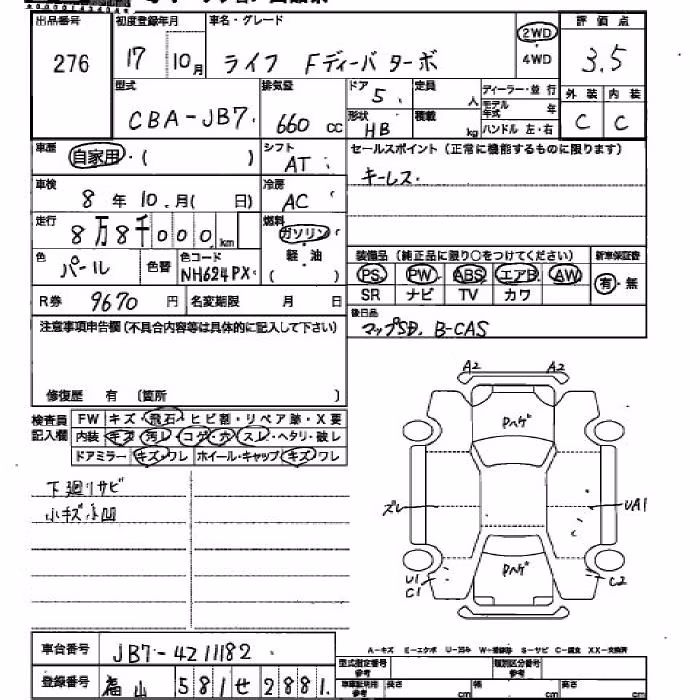 出品番号 初度登録年月 車名・グレード 評価点
276 17 10月 ライフ Fディーバターボ 2WD 4WD 3.5
型式 排気量 ドア 定員 ディーラー・並行 外装 内装
CBA-JB7 660cc 5 人 モデル年式 年 C C
形状 積載 ハンドル 左・右
HB kg
車歴 自家用・( ) シフト セールスポイント(正常に機能するものに限ります)
AT キーレス
車検 8年10月( 日) 冷房 AC
走行 8万8千000km 燃料 ガソリン・軽油 ( )
色 パール 色替 色コード NH624PX
装備品(純正品に限り○をつけてください) 新車保証書
PS PW ABS エアB AW 有・無
SR ナビ TV カワ
R券 9670円 名変期限 月 日
後日品
マップSD. B-CAS
注意事項申告欄(不具合内容等は具体的に記入して下さい)
修復歴 有 〔箇所 〕
検査員記入欄 FW キズ・飛石・ヒビ割・リペア跡・X要
内装 キズ・汚レ・コゲ・穴・スレ・ヘタリ・破レ
ドアミラー キズ・ワレ ホイール・キャップ キズ・ワレ
下廻リサビ
小キズ小凹
A2 A2
Pハゲ
ズレ UA1
Pハゲ
U1
C1
C2
A-キズ E-エクボ U-凹み W-補修跡 S-サビ C-腐食 XX-交換済
車台番号 JB7-4211182
型式指定番号 参考 類別区分番号 参考
登録番号 福山 581 せ 2881
車庫証明用 参考 長さ cm 幅 cm 高さ cm